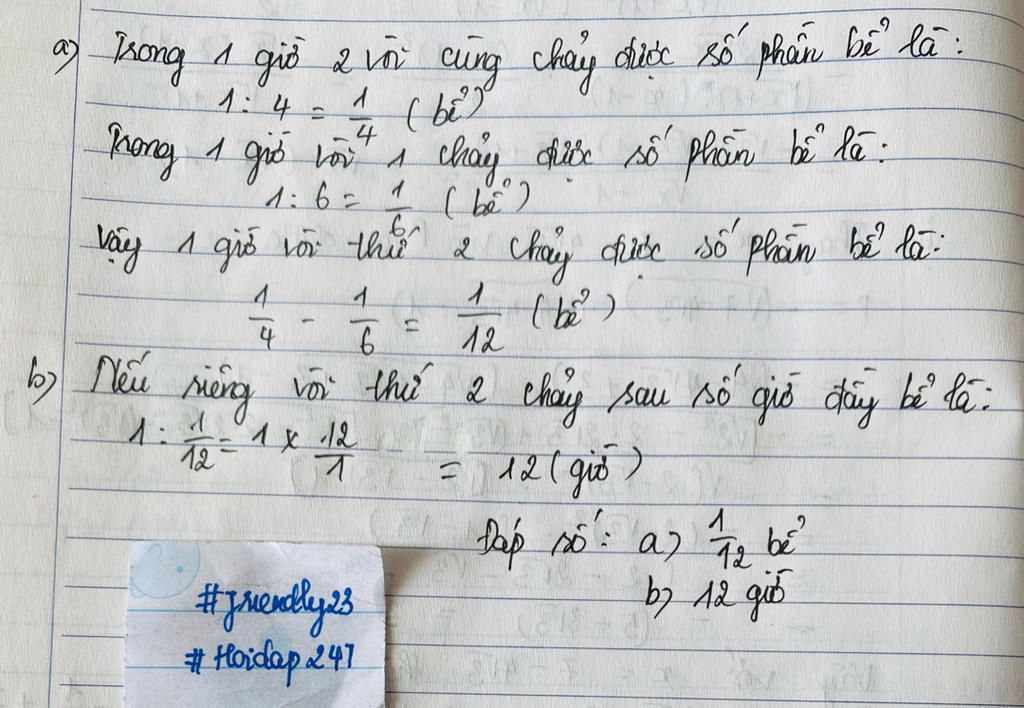 a) Trong 1 giờ 2 vòi cùng chảy được số phần bể là:
1 : 4 = 1/4 (bể)
Trong 1 giờ vòi 1 chảy được số phần bể là:
1 : 6 = 1/6 (bể)
Vậy 1 giờ vòi thứ 2 chảy được số phần bể là:
1/4 - 1/6 = 1/12 (bể)
b) Nếu riêng vòi thứ 2 chảy sau số giờ đầy bể là:
1 : 1/12 = 1 x 12/1 = 12 (giờ)
Đáp số: a) 1/12 bể
b) 12 giờ
#friendly23
#Hoidap247